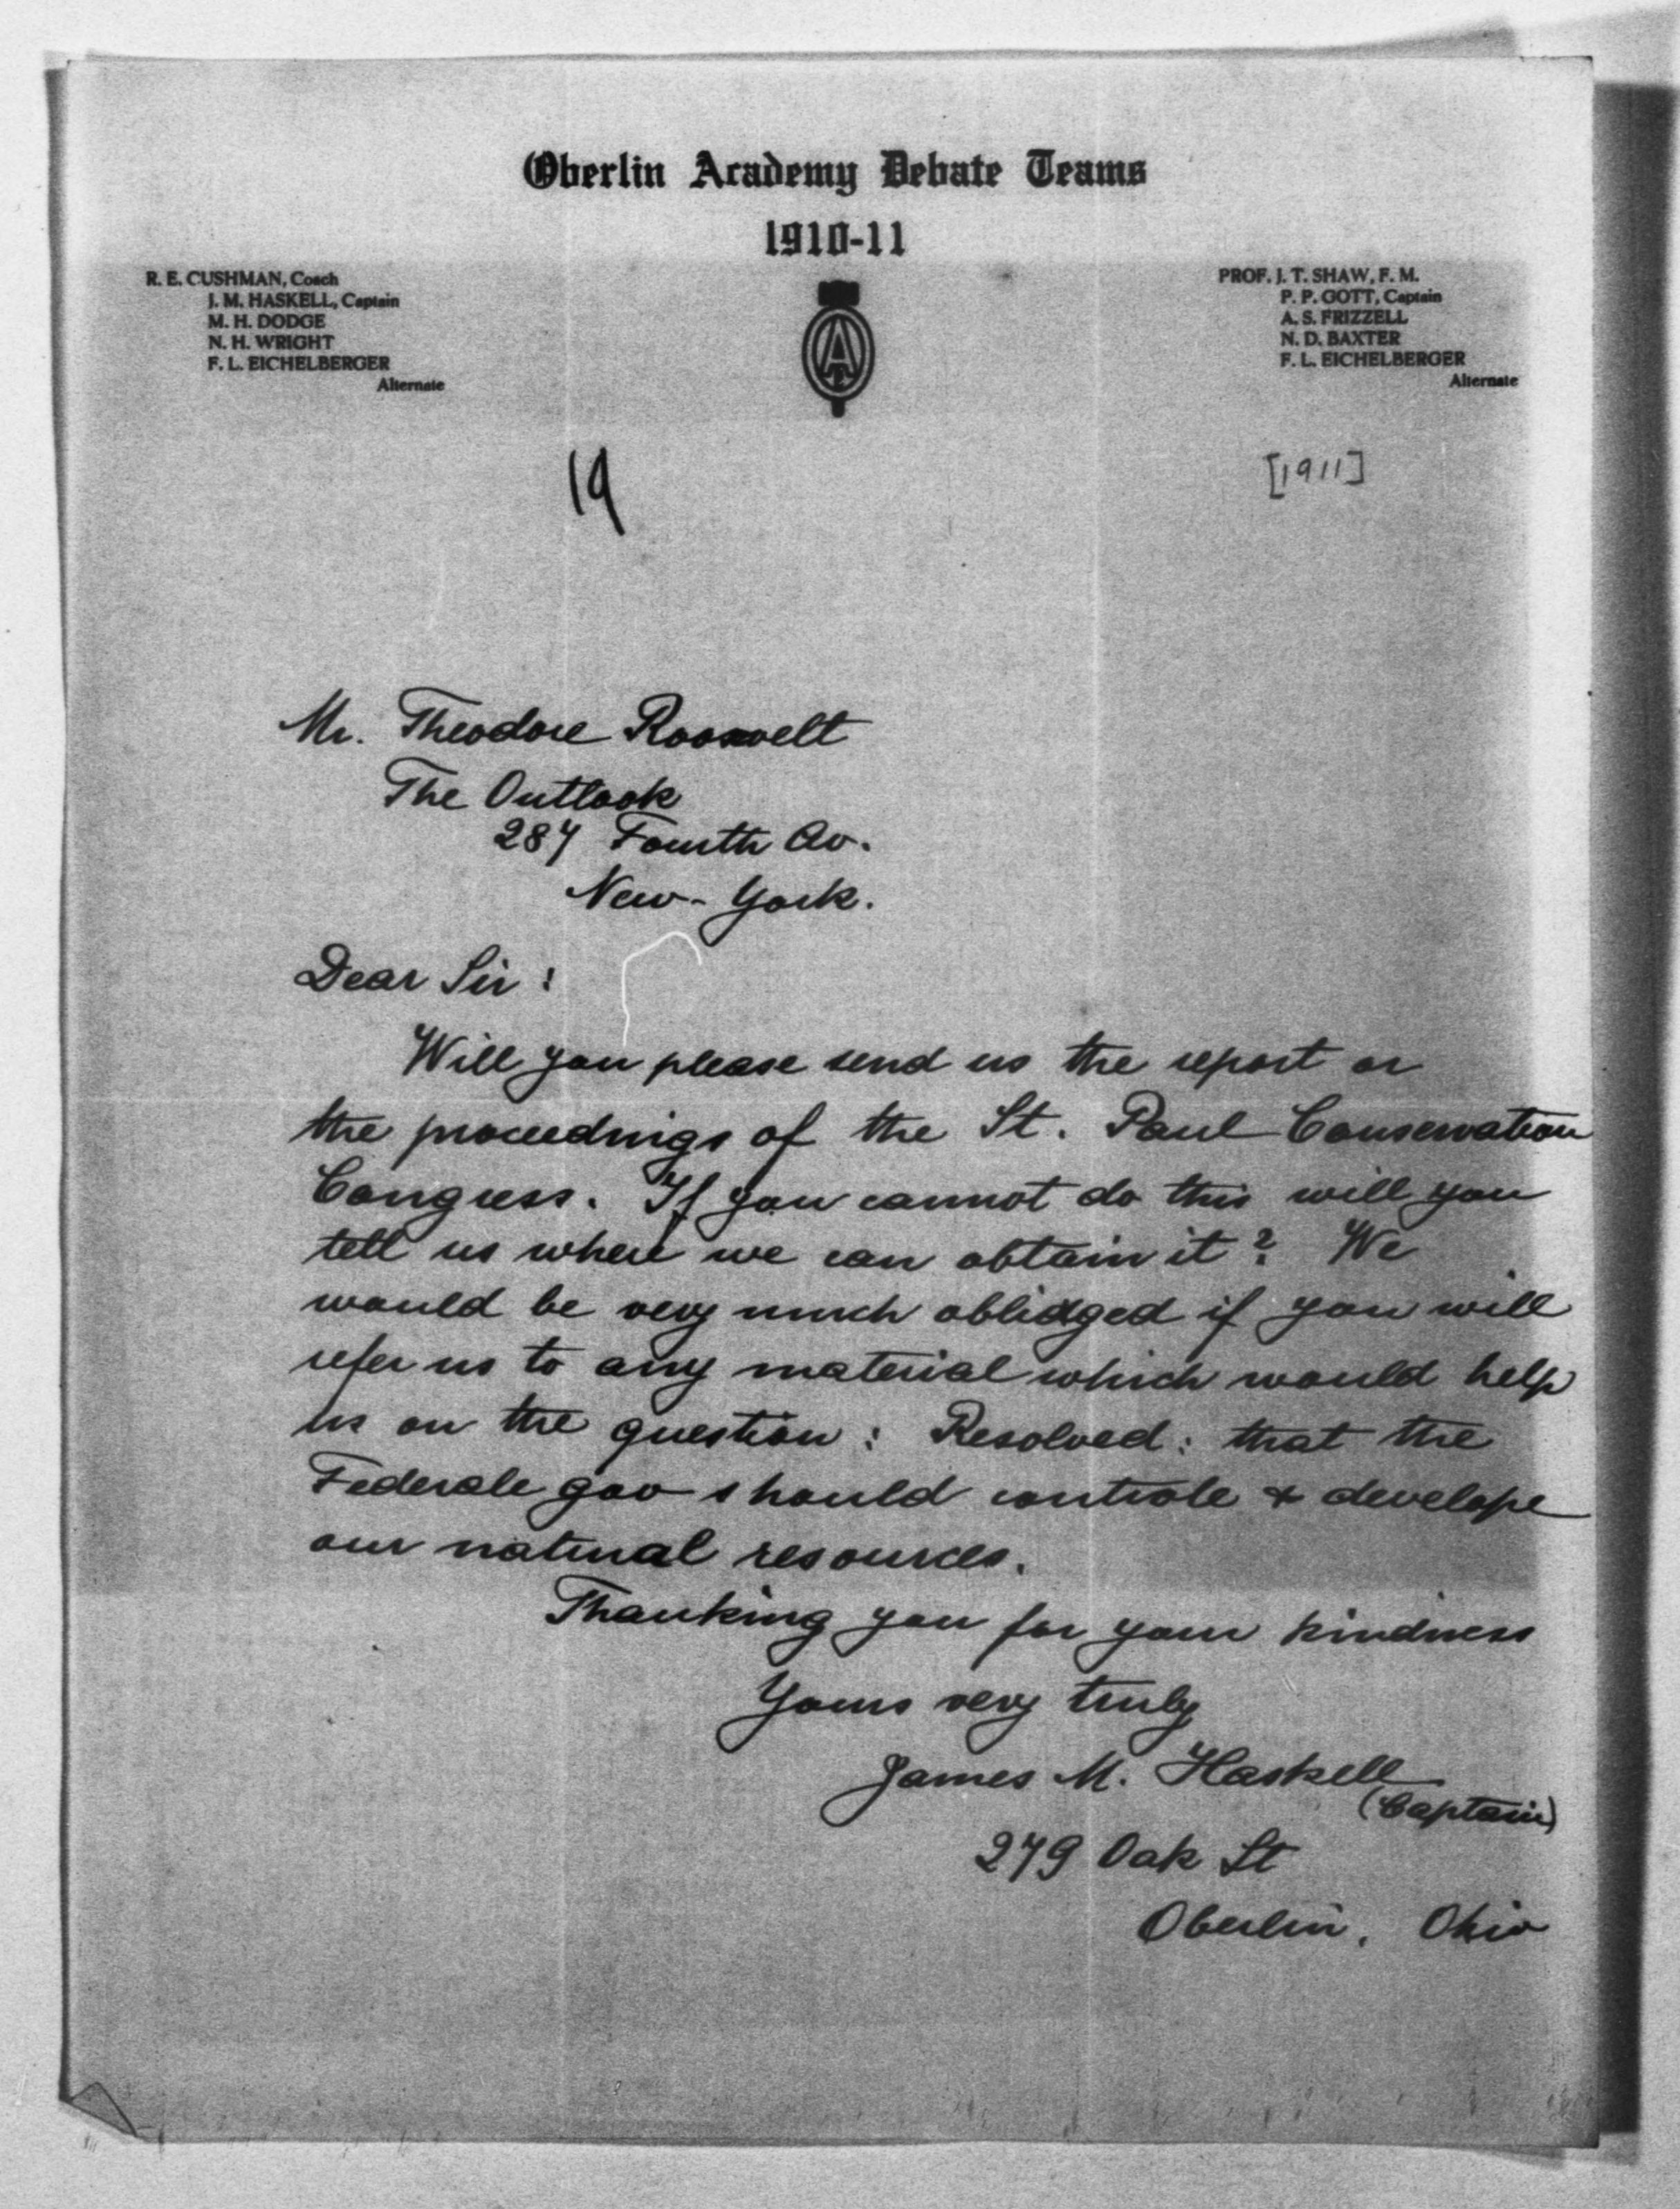 Oberlin Academy Debate Teams
1910-11
R. E. CUSHMAN, Coach
J. M. HASKELL, Captain
M. H. DODGE
N. H. WRIGHT
F. L. EICHELBERGER
Alternate
PROF. J. T. SHAW, F. M.
P. P. GOTT, Captain
A. S. FRIZZELL
N. D. BAXTER
F. L. EICHELBERGER
Alternate
19
[1911]
Mr. Theodore Roosevelt
The Outlook
287 Fourth Av.
New-York.
Dear Sir:
Will you please send us the report or
the proceedings of the St. Paul Conservation
Congress. If you cannot do this will you
tell us where we can obtain it? We
would be very much oblidged if you will
refer us to any material which would help
us on the question: Resolved: that the
Federale gov should controle & develope
our natural resources.
Thanking you for your kindness
Yours very truly
James M. Haskell
(Captain)
279 Oak St
Oberlin, Ohio